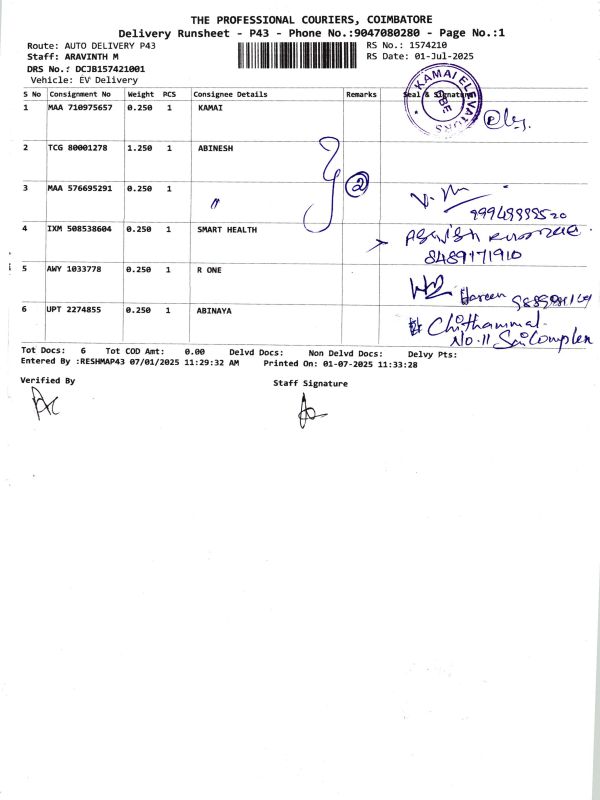 THE PROFESSIONAL COURIERS, COIMBATORE
Delivery Runsheet - P43 - Phone No.:9047080280 - Page No.:1
Route: AUTO DELIVERY P43
RS No.: 1574210
Staff: ARAVINTH M
RS Date: 01-Jul-2025
DRS No.: DCJB157421001
Vehicle: EV Delivery
S No Consignment No Weight PCS Consignee Details Remarks Seal & Signature
1 MAA 710975657 0.250 1 KAMAI
KAMAI ELEVATORS
CBE
2 TCG 80001278 1.250 1 ABINESH
3 MAA 576695291 0.250 1 〃 2
4 IXM 508538604 0.250 1 SMART HEALTH
8489171910
5 AWY 1033778 0.250 1 R ONE
Hareen
6 UPT 2274855 0.250 1 ABINAYA
Chithammal
No.11 Sai Complex
Tot Docs: 6 Tot COD Amt: 0.00 Delvd Docs: Non Delvd Docs: Delvy Pts:
Entered By :RESHMAP43 07/01/2025 11:29:32 AM Printed On: 01-07-2025 11:33:28
Verified By
Staff Signature